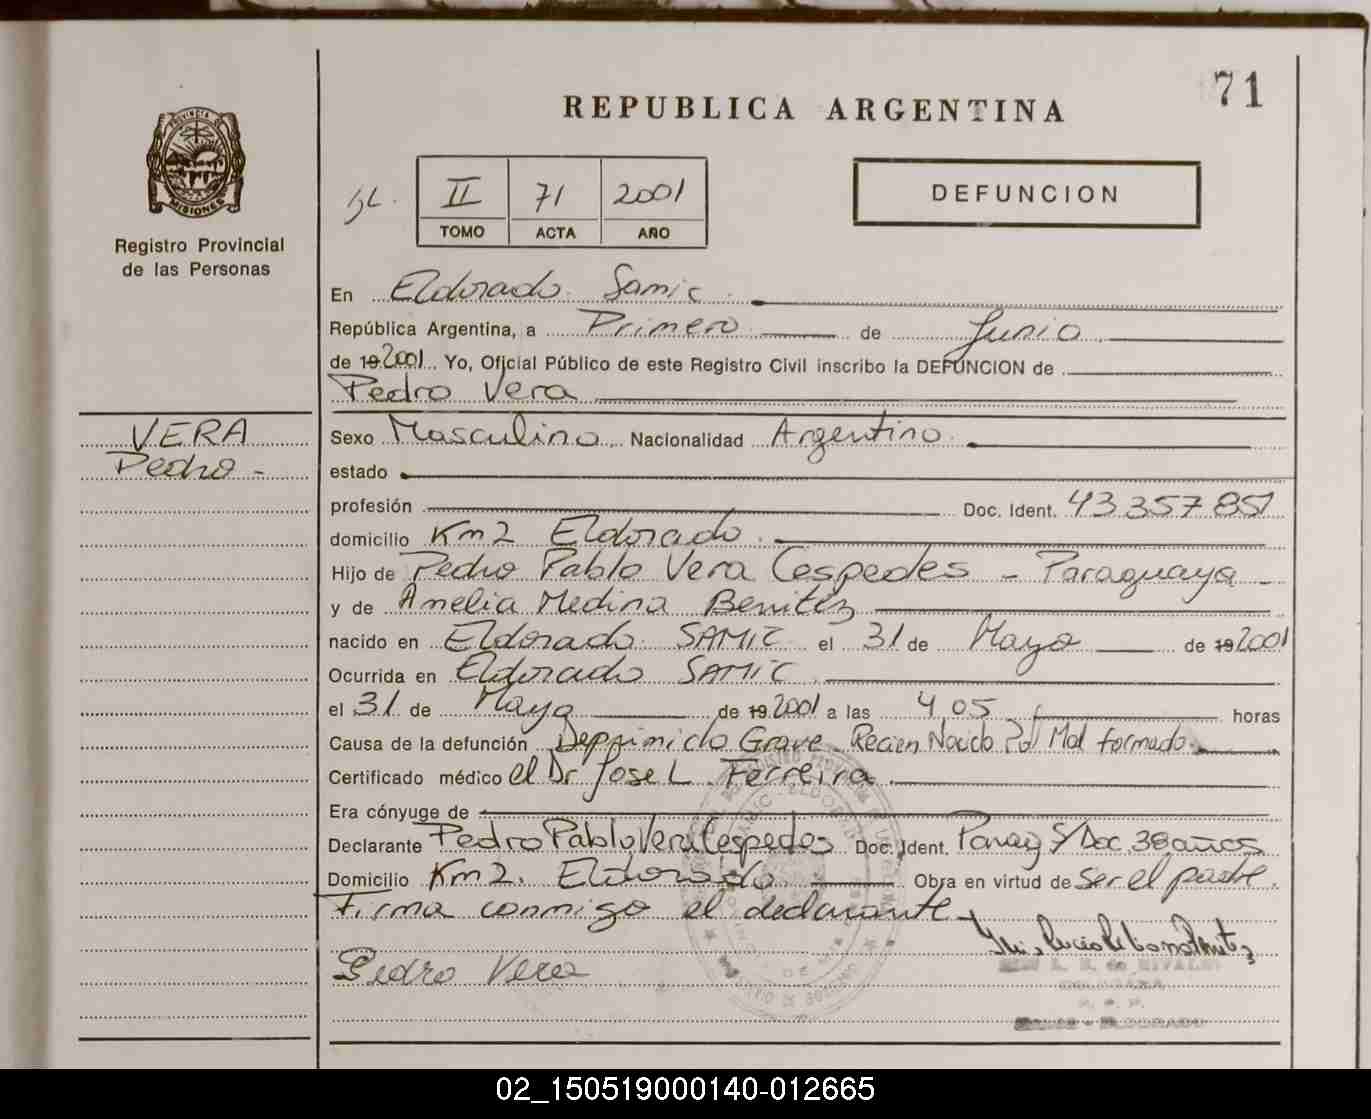 71
REPUBLICA ARGENTINA
PROVINCIA DE
MISIONES
Registro Provincial
de las Personas
II 71 2001
TOMO ACTA AÑO
DEFUNCION
En Eldorado Samic
República Argentina, a Primero de Junio
de 19 2001 Yo, Oficial Público de este Registro Civil inscribo la DEFUNCION de
Pedro Vera
VERA
Pedro -
Sexo Masculino Nacionalidad Argentino
estado
profesión Doc. Ident. 43 357 851
domicilio Km2 Eldorado
Hijo de Pedro Pablo Vera Cespedes - Paraguaya -
y de Amelia Medina Benitez
nacido en Eldorado SAMIC el 31 de Mayo de 19 2001
Ocurrida en Eldorado SAMIC
el 31 de Mayo de 19 2001 a las 4 05 horas
Causa de la defunción Deprimido Grave Recien Nacido Pol Mal formado
Certificado médico el Dr Jose L Ferreira
Era cónyuge de
Declarante Pedro Pablo Vera Cespedes Doc. Ident. Parag S/Doc. 38 años
Domicilio Km2. Eldorado Obra en virtud de ser el padre.
Firma conmigo el declarante
Pedro Vera
02_150519000140-012665